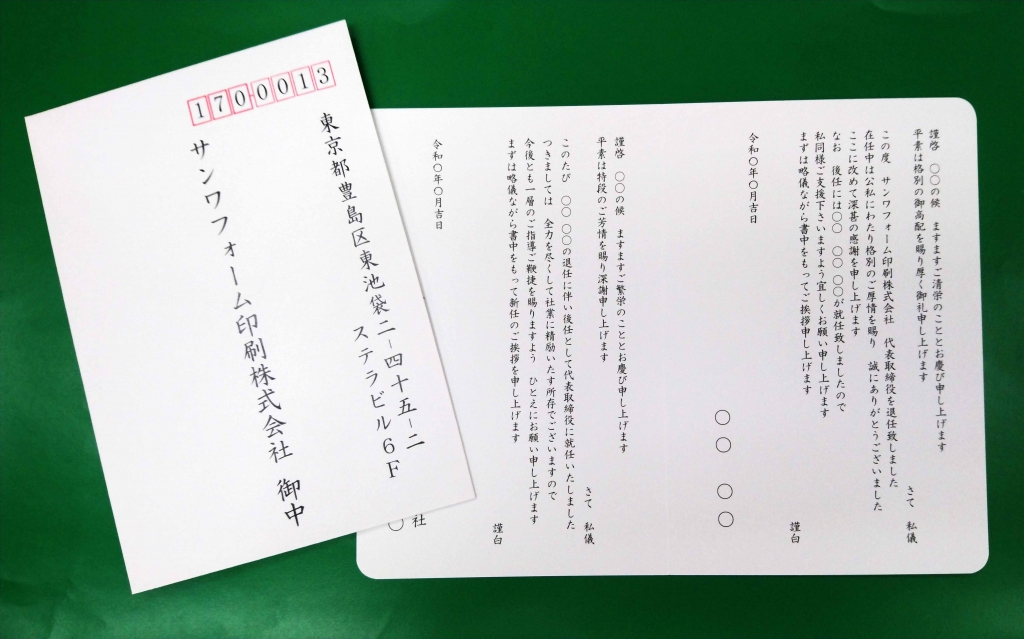 1700013
東京都豊島区東池袋二−四十五−二
ステラビル6F
サンワフォーム印刷株式会社 御中
謹啓 〇〇の候 ますますご清栄のこととお慶び申し上げます
平素は格別の御高配を賜り厚く御礼申し上げます
さて 私儀
この度 サンワフォーム印刷株式会社 代表取締役を退任致しました
在任中は公私にわたり格別のご厚情を賜り 誠にありがとうございました
ここに改めて深甚の感謝を申し上げます
なお 後任には〇〇 〇〇 〇〇が就任致しましたので
私同様ご支援下さいますよう宜しくお願い申し上げます
まずは略儀ながら書中をもってご挨拶申し上げます
謹白
令和〇年〇月吉日
〇〇 〇〇
謹啓 〇〇の候 ますますご繁栄のこととお慶び申し上げます
平素は特段のご芳情を賜り深謝申し上げます
さて 私儀
このたび 〇〇 〇〇の退任に伴い後任として代表取締役に就任いたしました
つきましては 全力を尽くして社業に精励いたす所存でございますので
今後とも一層のご指導ご鞭撻を賜りますよう ひとえにお願い申し上げます
まずは略儀ながら書中をもって新任のご挨拶を申し上げます
謹白
令和〇年〇月吉日
社
〇